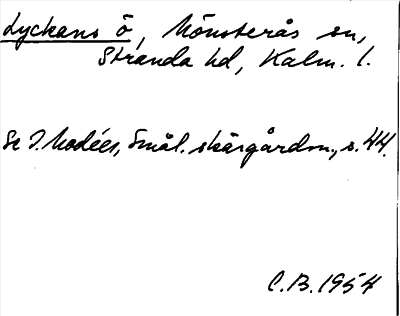 Lyckans ö, Mönsterås sn,
Stranda hd, Kalm. l.
Se I. Modéer, Smål. skärgårdsn., s. 44.
C.B. 1954